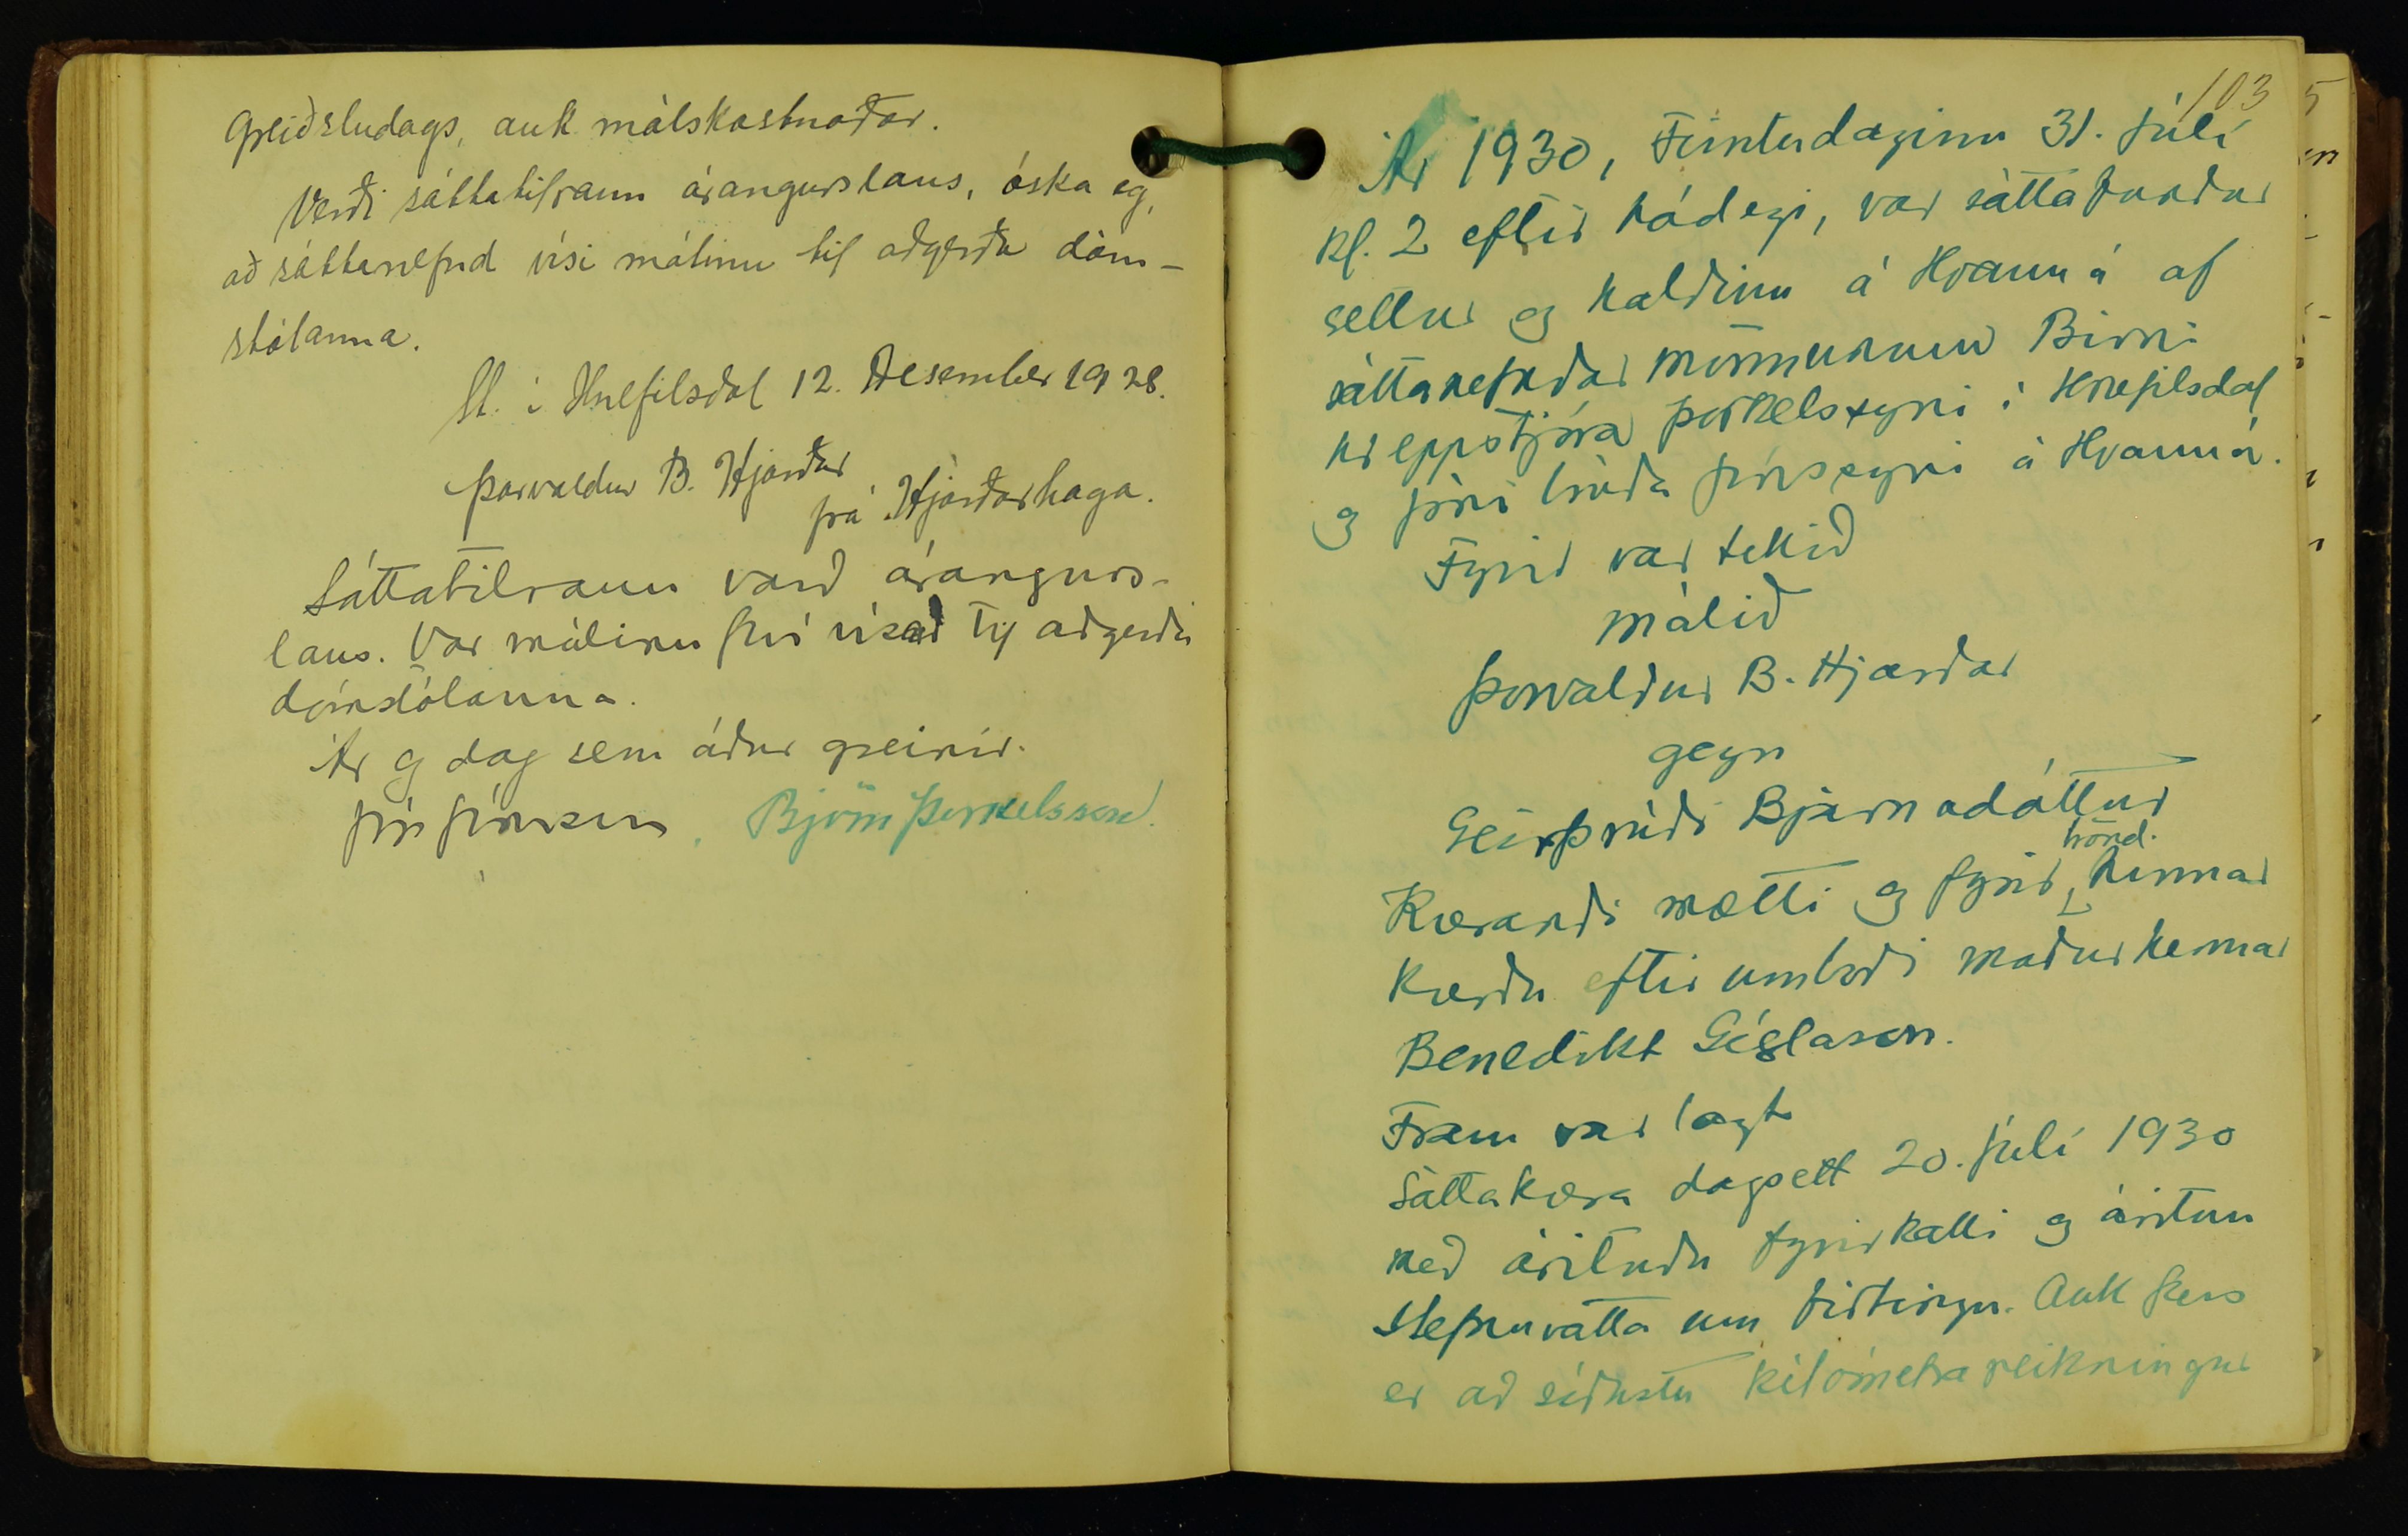 greiðsludags, auk málskostnaðar.
Verði sáttatilraun árangurslaus, óska eg,
að sáttanefnd vísi málinu til aðgerða dóm-
stólanna.
St. í Hnefilsdal 12. Desember 1928.
Þorvaldur B. Hjarðar
frá Hjarðarhaga.
Sáttatilraun varð árangurs-
laus. Var málinu því vísað til aðgerða
dómstólanna.
Ár og dag sem áður greinir.
Jón Jónsson. Björn Þorkelsson.
103
Ár 1930, Fimtudaginn 31. júlí
kl. 2 eftir hádegi, var sáttafundur
settur og haldinn á Hvanná af
sáttanefndar mönnunum Birni
hreppstjóra Þorkelssyni í Hnefilsdal
og Jóni bónda Jónssyni á Hvanná.
Fyrir var tekið
málið
Þorvaldur B. Hjarðar
gegn
Geirþrúði Bjarnadóttur
hönd.
Kærandi mætti og fyrir hennar
kærðu eftir umboði maður hennar
Benedikt Gíslason.
Fram var lagt
Sáttakæra dagsett 20. júlí 1930
með árituðu fyrirkalli og áritun
stefnuvotta um birtingu. Auk þess
er að síðustu kílómetrareikningur